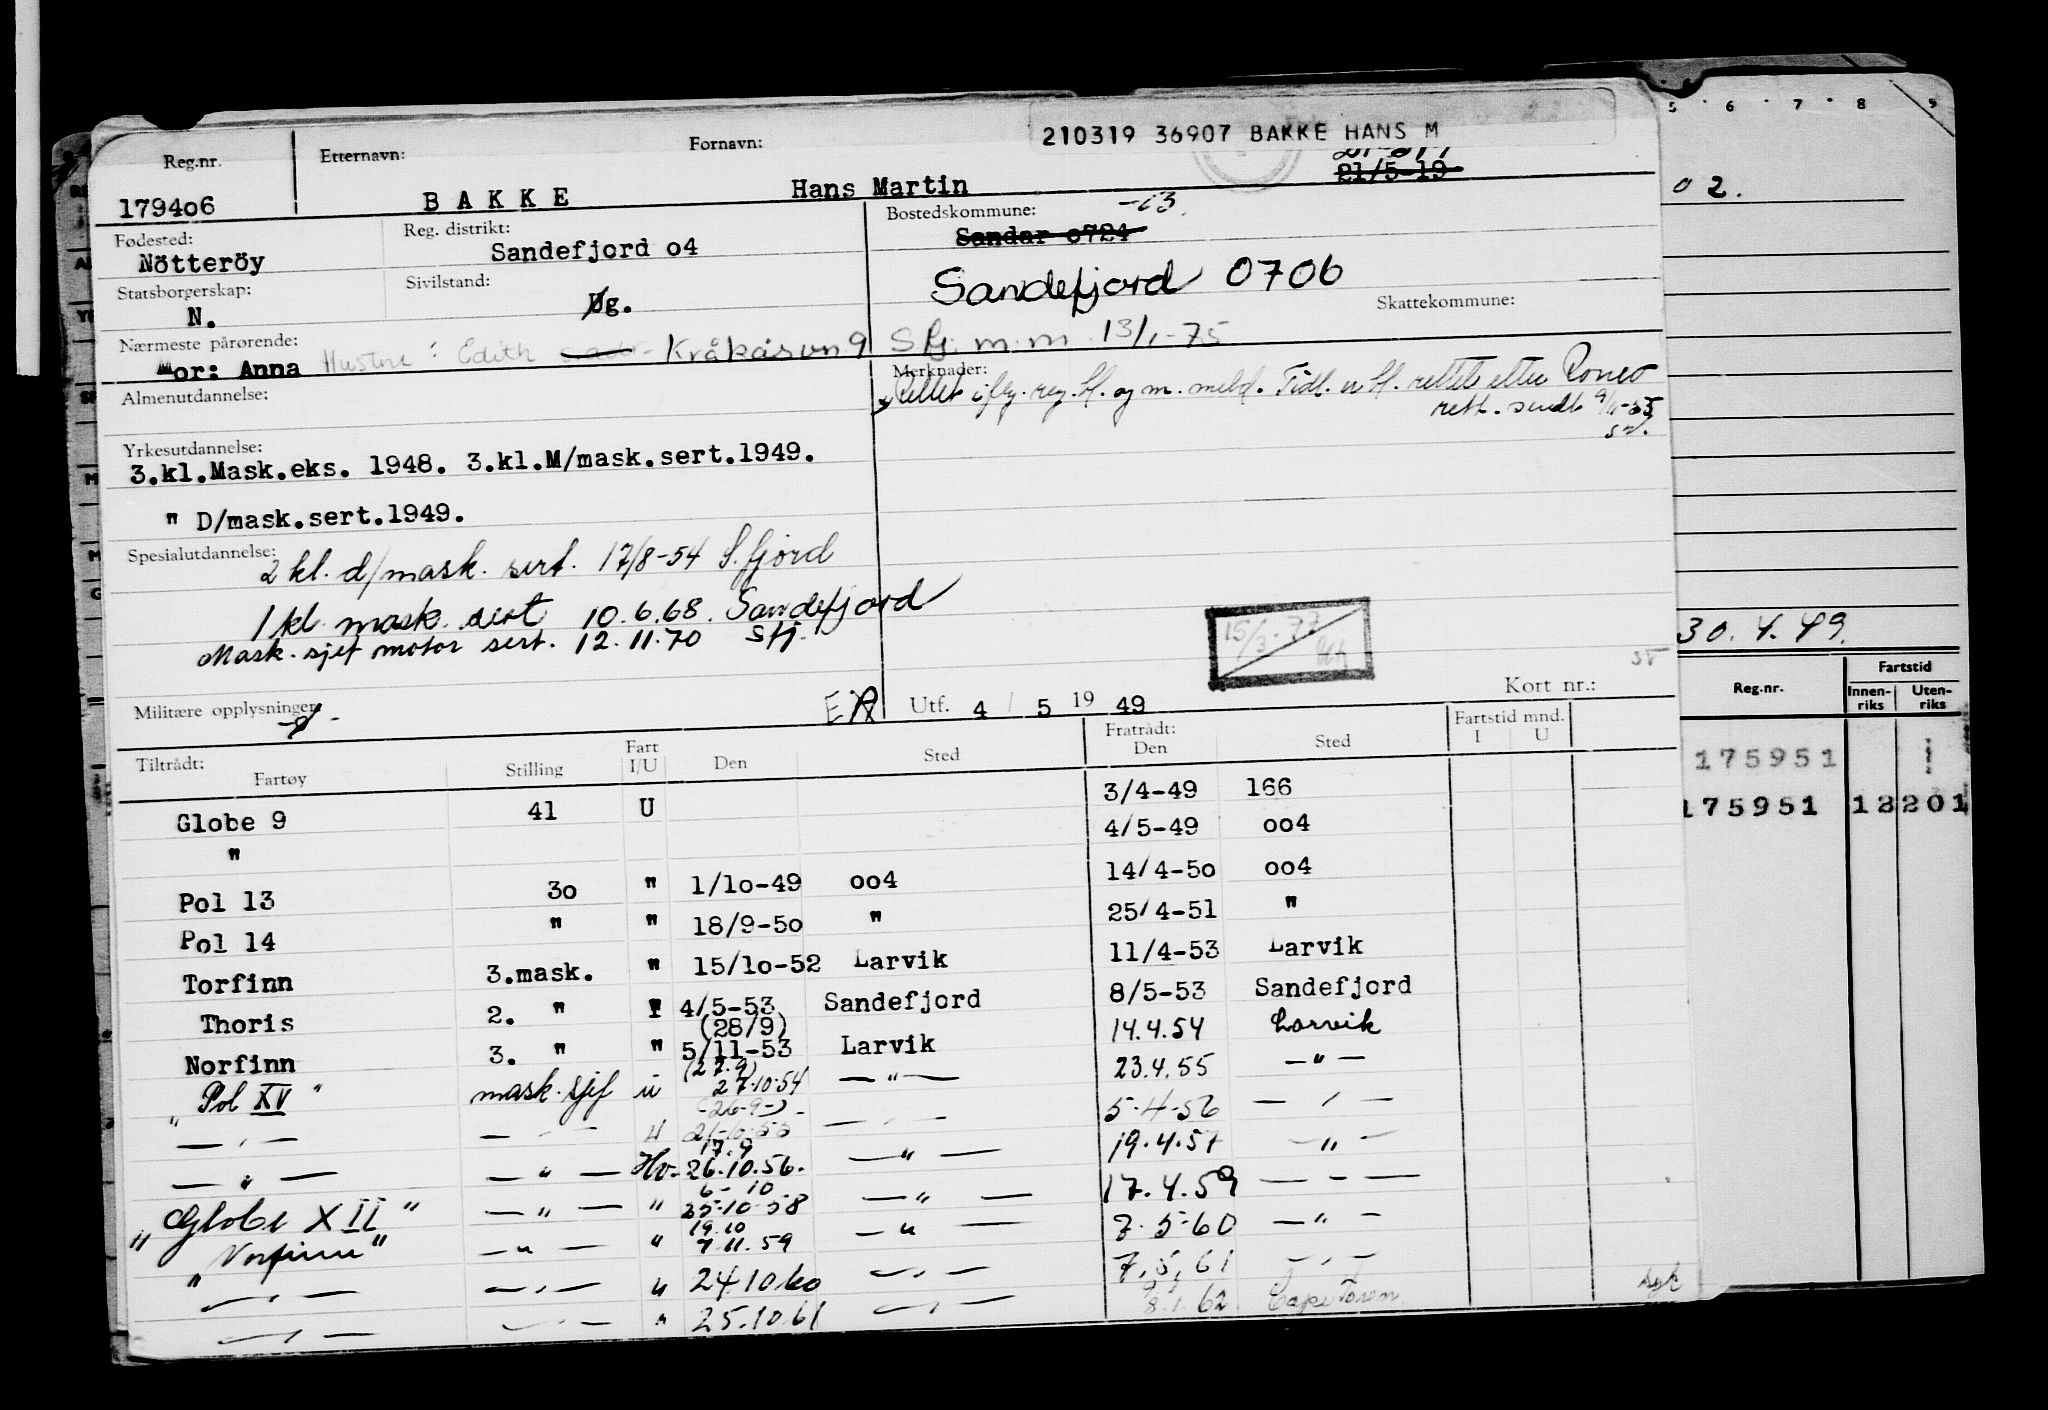 210319 36907 BAKKE HANS M
Reg.nr. Etternavn: Fornavn:
21/5-19
179406 BAKKE Hans Martin
Fødested: Reg. distrikt: Bostedskommune: -i3.
Nötteröy Sandefjord o4 Sandar o724
Statsborgerskap: Sivilstand: Sandefjord 0706
N. Ug. Skattekommune:
Nærmeste pårørende:
Mor: Anna Hustru: Edith Kråkåsvn 9 Sfj. m.m. 13/1-75
Almenutdannelse: Merknader:
Rettet reg. bl. og m. meld. Tidl. rettet etter Roneo
rett. sendt 9/11-55
Yrkesutdannelse:
3.kl.Mask.eks. 1948. 3.kl.M/mask.sert.1949.
" D/mask.sert.1949.
Spesialutdannelse:
2 kl. d/mask. sert. 17/8-54 S.fjord
1 kl. mask. sert 10.6.68. Sandefjord
Mask. sjef motor sert. 12.11.70 Sfj.
15/3-77
Militære opplysninger: Utf. 4 / 5 19 49 Kort nr.:
Tiltrådt: Fratrådt: Fartstid mnd.
Fartøy Stilling Fart I/U Den Sted Den Sted I U
Globe 9 41 U 3/4-49 166
" 4/5-49 oo4
Pol 13 3o " 1/1o-49 oo4 14/4-5o oo4
Pol 14 " " 18/9-5o " 25/4-51 "
Torfinn 3.mask. " 15/1o-52 Larvik 11/4-53 Larvik
Thoris 2. " I 4/5-53 Sandefjord 8/5-53 Sandefjord
(28/9)
Norfinn 3. " " 5/11-53 Larvik 14.4.54 Larvik
(27.9)
"Pol XV" mask. sjef u 27.10.54 — " — 23.4.55 — " —
(26-9)
— " — — " — u 21-10-55 — " — 5-4-56 — " —
17.9
— " — — " — Hv. 26.10.56. — " — 19.4.57 — " —
6-10
"Globe XII" — " — " 25-10-58 — " — 17.4.59 — " —
19.10
"Norfinn" — " — " 7.11.59 — " 7.5-60 — " —
— " — — " — " 24.10.60 — " — 7,5,61 — " —
— " — — " — " 25.10.61 — " — 8.1.62 Cape Town syk
5 6 7 8 9
02.
30.4.49.
Reg.nr. Fartstid
Innen-riks Uten-riks
175951
175951 12 201